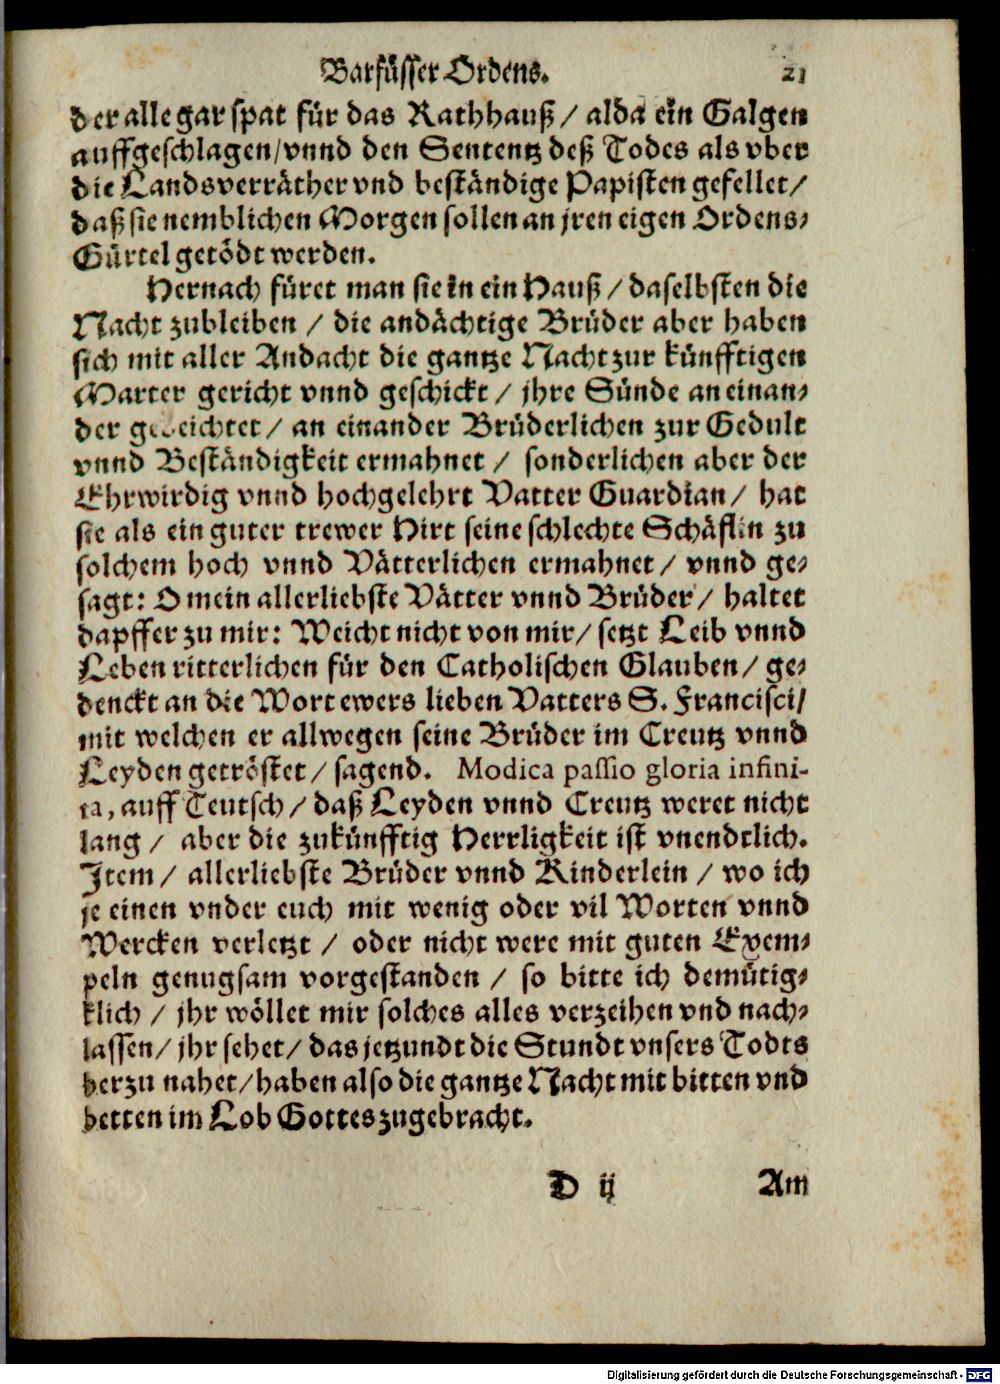 Barfüsser Ordens. 21
der alle gar spat für das Rathhauß / alda ein Galgen
auffgeschlagen/vnnd den Sententz deß Todes als vber
die Landsverräther vnd beständige Papisten gefellet/
daß sie nemblichen Morgen sollen an jren eigen Ordens-
Gürtel getödt werden.
Hernach füret man sie in ein Hauß / daselbsten die
Nacht zubleiben / die andächtige Brüder aber haben
sich mit aller Andacht die gantze Nacht zur künfftigen
Marter gericht vnnd geschickt / jhre Sünde an einan-
der gebeichtet / an einander Brüderlichen zur Gedult
vnnd Beständigkeit ermahnet / sonderlichen aber der
Ehrwirdig vnnd hochgelehrt Vatter Guardian / hat
sie als ein guter trewer Hirt seine schlechte Schäflin zu
solchem hoch vnnd Vätterlichen ermahnet / vnnd ge-
sagt: O mein allerliebste Vätter vnnd Brüder / haltet
dapffer zu mir: Weicht nicht von mir/ setzt Leib vnnd
Leben ritterlichen für den Catholischen Glauben / ge-
denckt an die Wort ewers lieben Vatters S. Francisci/
mit welchen er allwegen seine Brüder im Creutz vnnd
Leyden getröstet / sagend. Modica passio gloria infini-
ta, auff Teutsch / daß Leyden vnnd Creutz weret nicht
lang / aber die zukünfftig Herrligkeit ist vnendtlich.
Item / allerliebste Brüder vnnd Kinderlein / wo ich
je einen vnder euch mit wenig oder vil Worten vnnd
Wercken verletzt / oder nicht were mit guten Exem-
peln genugsam vorgestanden / so bitte ich demütig-
klich / jhr wöllet mir solches alles verzeihen vnd nach-
lassen/ jhr sehet/ das jetzundt die Stundt vnsers Todts
herzu nahet/haben also die gantze Nacht mit bitten vnd
betten im Lob Gottes zugebracht.
D ij Am
Digitalisierung gefördert durch die Deutsche Forschungsgemeinschaft - DFG